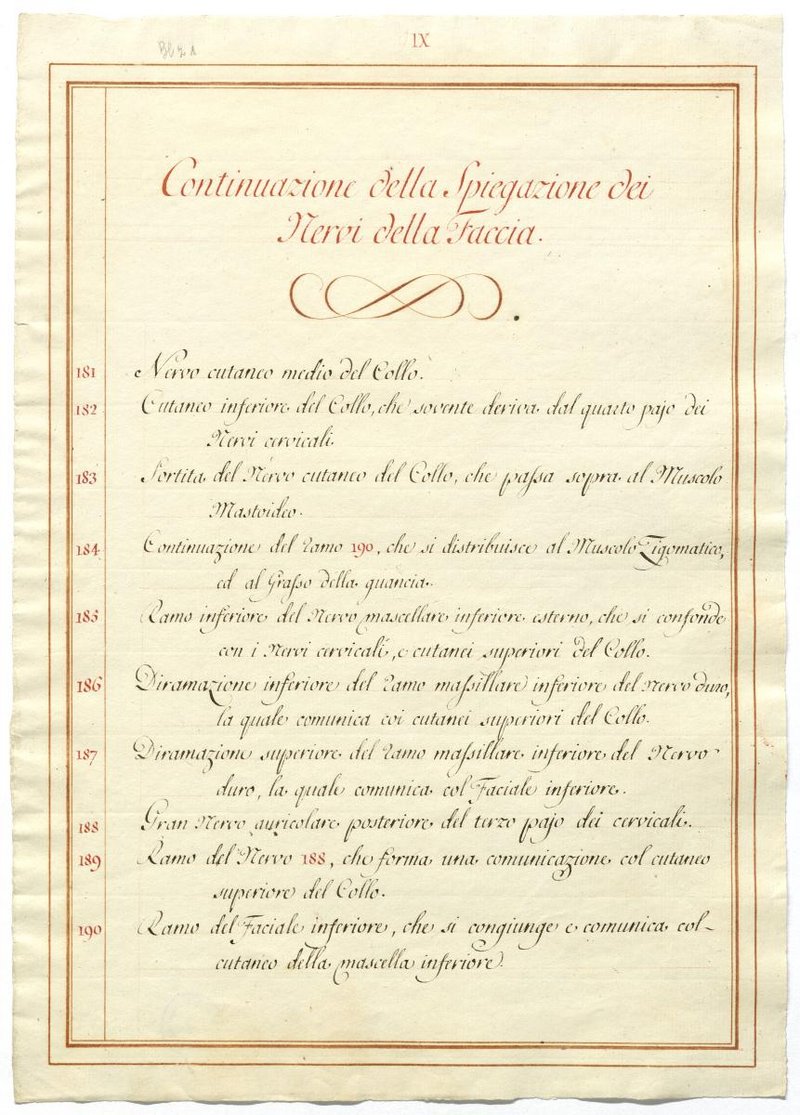 IX
Continuazione della Spiegazione dei
Nervi della Faccia.
181 Nervo cutaneo medio del Collo.
182 Cutaneo inferiore del Collo, che sovente deriva dal quarto pajo dei
Nervi cervicali.
183 Sortita del Nervo cutaneo del Collo, che paſsa sopra al Muscolo
Mastoideo.
184 Continuazione del ramo 190, che si distribuisce al Muscolo Zigomatico,
ed al Graſso della guancia.
185 Ramo inferiore del Nervo mascellare inferiore esterno, che si confonde
con i Nervi cervicali, e cutanei superiori del Collo.
186 Diramazione inferiore del ramo maſsillare inferiore del Nervo duro,
la quale comunica coi cutanei superiori del Collo.
187 Diramazione superiore del ramo maſsillare inferiore del Nervo
duro, la quale comunica col Faciale inferiore.
188 Gran Nervo auricolare posteriore del terzo pajo dei cervicali.
189 Ramo del Nervo 188, che forma una comunicazione col cutaneo
superiore del Collo.
190 Ramo del Faciale inferiore, che si congiunge e comunica col-
cutaneo della mascella inferiore.